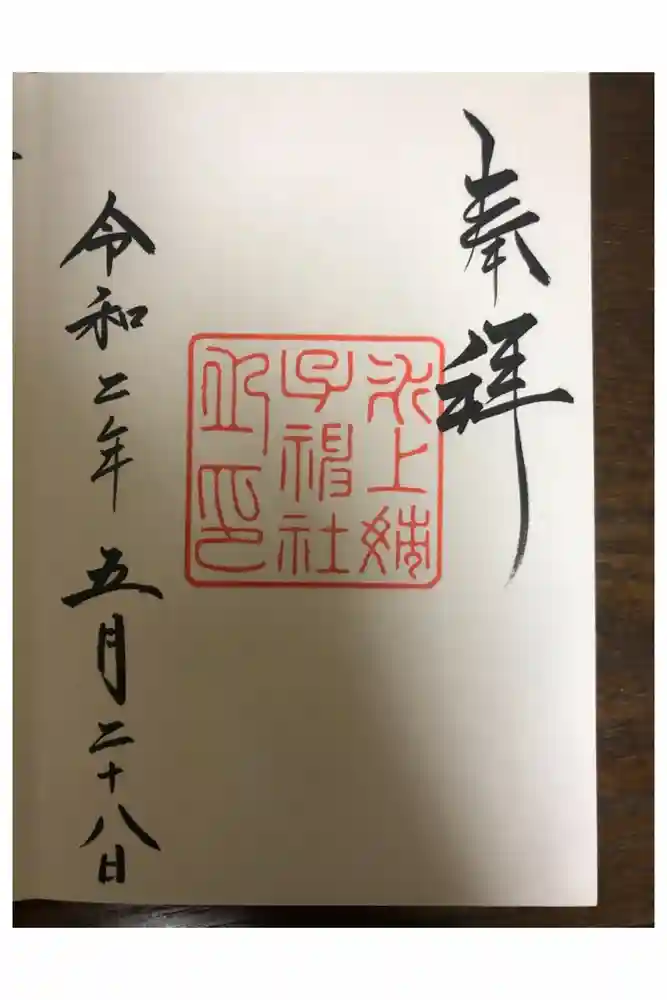 奉拝
氷上姉
子神社
印
令和二年 五月二十八日